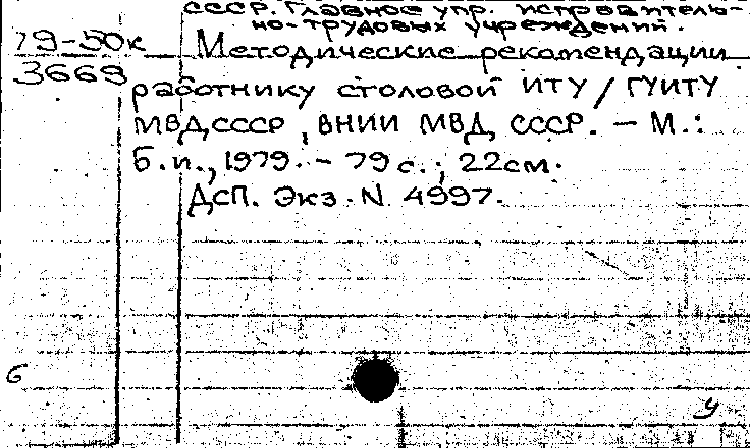 СССР. Главное упр. исправитель-
но-трудовых учреждений.
79-50к Методические рекомендации
3669 работнику столовой ИТУ / ГУИТУ
МВД СССР, ВНИИ МВД СССР. – М.:
Б.и., 1979. – 79 с.; 22 см.
ДСП. Экз. N 4997.
б
у